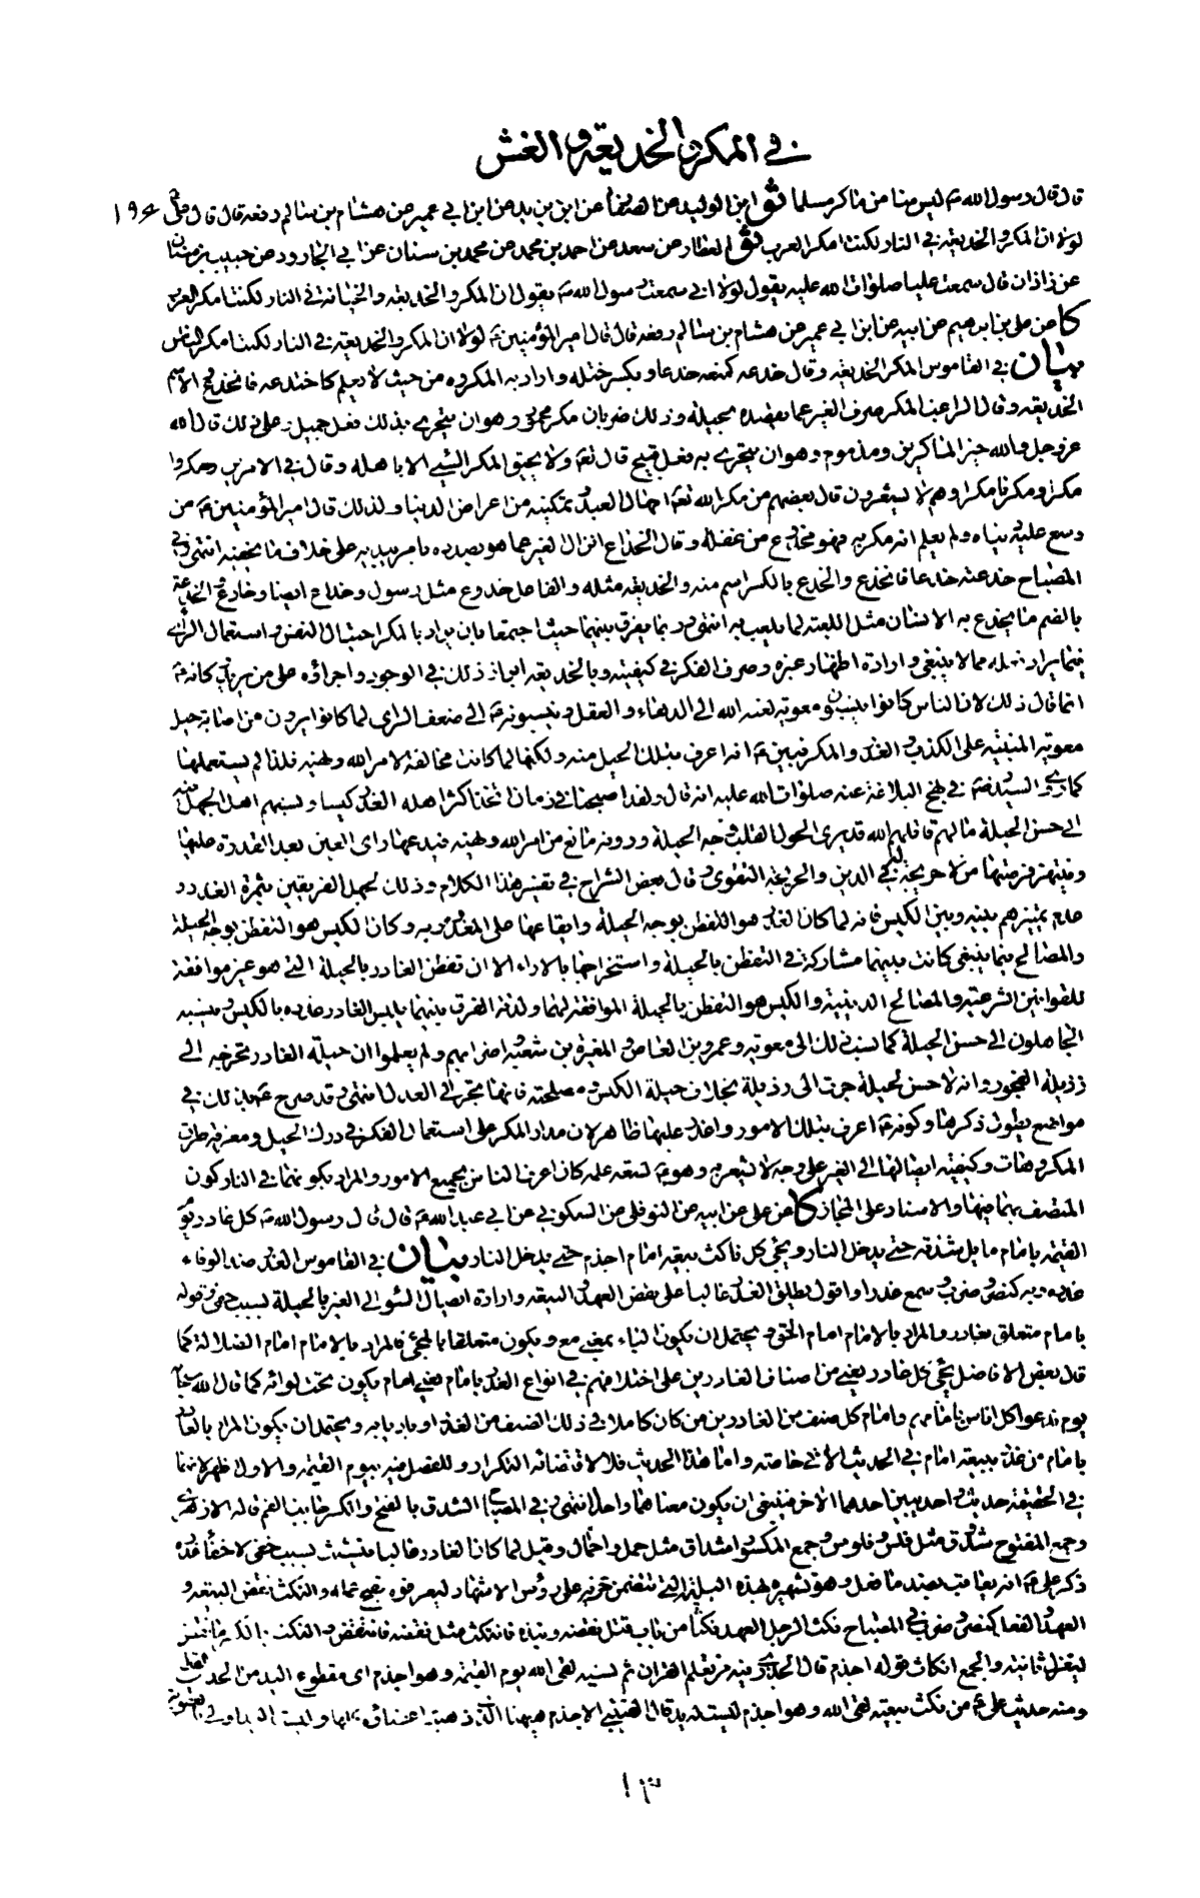 في المكر والخديعة والغش
قال قال رسول الله ص ليس منا من ماكر مسلما ثو ابن الوليد عن الصفار عن ابن يزيد عن ابن ابي عمير عن هشام بن سالم رفعه قال قال علي ١٩٤
لولا ان المكر والخديعة في النار لكنت امكر العرب ثو العطار عن سعد عن احمد بن محمد عن محمد بن سنان عن ابي الجارود عن حبيب بن سنان
عن زاذان قال سمعت عليا صلوات الله عليه يقول لولا اني سمعت رسول الله ص يقول ان المكر والخديعة والخيانة في النار لكنت امكر العرب
كا عن علي بن ابرهيم عن ابيه عن ابن ابي عمير عن هشام بن سالم رفعه قال قال امير المؤمنين ع لولا ان المكر والخديعة في النار لكنت امكر الناس
بيان في القاموس المكر الخديعة وقال خدعه كمنعه خدعا ويكسر ختله واراد به المكروه من حيث لا يعلم كاختدعه فانخدع الاسم
الخديعة وقال الراغب المكر صرف الغير عما يقصده بحيلة وذلك ضربان مكر محمود وهو ان يتحرى بذلك فعل جميل وعلى ذلك قال الله
عز وجل والله خير الماكرين ومذموم وهو ان يتحرى به فعل قبيح قال تعا ولا يحيق المكر السيئ الا باهله وقال في الامرين ومكروا
مكرا ومكرنا مكرا وهم لا يشعرون قال بعضهم من مكر الله تعا امهال العبد وتمكينه من اعراض الدنيا ولذلك قال امير المؤمنين ع من
وسع عليه دنياه ولم يعلم انه مكر به فهو مخدوع عن عقله وقال الخداع انزال الغير عما هو بصدده بامر يبديه على خلاف ما يخفيه انتهى وفي
المصباح خدعته خدعا فانخدع والخدع بالكسر اسم منه والخديعة مثله والفاعل خدوع مثل رسول وخداع ايضا وخادع والخدعة
بالضم ما يخدع به الانسان مثل اللعبة لما يلعب به انتهى وربما يفرق بينهما حيث اجتمعا بان يراد بالمكر احتيال النفس واستعمال الراي
فيما يراد فعله مما لا ينبغي وارادة اظهار غيره وصرف الفكر في كيفيته وبالخديعة ابراز ذلك في الوجود واجراؤه على من يريد وكانه ع
انما قال ذلك لان الناس كانوا ينسبون معوية لعنه الله الى الدهاء والعقل وينسبونه ع الى ضعف الراي لما كانوا يرون من اصابة حيل
معوية المبنية على الكذب والغدر والمكر فبين ع انه اعرف بتلك الحيل منه ولكنها لما كانت مخالفة لامر الله ونهيه فلذا لم يستعملها
كما روى السيد رض في نهج البلاغة عنه صلوات الله عليه انه قال ولقد اصبحنا في زمان اتخذ اكثر اهله الغدر كيسا ونسبهم اهل الجهل فيه
الى حسن الحيلة ما لهم قاتلهم الله قد يرى الحول القلب وجه الحيلة ودونه مانع من امر الله ونهيه فيدعها راى العين بعد القدرة عليها
وينتهز فرصتها من لا حريجة له في الدين والحريجة التقوى وقال بعض الشراح في تفسير هذا الكلام وذلك لجهل الفريقين بثمرة الغدر و
عدم تمييزهم بينه وبين الكيس فانه لما كان الغدر هو التفطن بوجه الحيلة وايقاعها على المغدور به وكان الكيس هو التفطن بوجه الحيلة
والمصالح فيما ينبغي كانت بينهما مشاركة في التفطن بالحيلة واستخراجها بالاراء الا ان تفطن الغادر بالحيلة التي هو غير موافقة
للقوانين الشرعية والمصالح الدينية والكيس هو التفطن بالحيلة الموافقة لهما ولدقة الفرق بينهما يلبس الغادر غدره بالكيس وينسبه
الجاهلون الى حسن الحيلة كما نسب ذلك الى معوية وعمرو بن العاص والمغيرة بن شعبة واضرابهم ولم يعلموا ان حيلة الغادر تخرجه الى
رذيلة الفجور وانه لا حسن لحيلة جرت الى رذيلة بخلاف حيلة الكيس ومصلحته فانها تجر الى العدل انتهى وقد صرح ع بذلك في
مواضع يطول ذكرها وكونه ع اعرف بتلك الامور واقدر عليها ظاهر لان مدار المكر على استعمال الفكر في درك الحيل ومعرفة طرق
المكروهات وكيفية ايصالها الى الغير على وجه لا يشعر به وهو ع لسعة علمه كان اعرف الناس بجميع الامور والمراد بكونهما في النار كون
المتصف بهما فيها والاسناد على المجاز كا عن علي عن ابيه عن النوفلي عن السكوني عن ابي عبد الله ع قال قال رسول الله ص كل غادر يوم
القيمة بامام مايل شدقه حتى يدخل النار ويجئ كل ناكث بيعة امام اجذم حتى يدخل النار بيان في القاموس الغدر ضد الوفاء
غدره وبه كنصر وضرب وسمع غدرا واقول يطلق الغدر غالبا على نقض العهد والبيعة وارادة ايصال السوء الى الغير بالحيلة بسبب خفي وقوله
بامام متعلق بغادر والمراد بالامام امام الحق ويحتمل ان يكون الباء بمعنى مع ويكون متعلقا بالمجئ فالمراد بالامام امام الضلالة كما
قال بعض الافاضل يجئ كل غادر يعني من اصناف الغادرين على اختلافهم في انواع الغدر بامام يعني امام يكون تحت لوائه كما قال الله سبحانه
يوم ندعوا كل اناس بامامهم وامام كل صنف من الغادرين من كان كاملا في ذلك الصنف من الغدر او باديا به ويحتمل ان يكون المراد بالغادر
بامام من غدر ببيعة امام في الحديث الاتي خاصة واما هذا الحديث فلا لاقتضائه التكرار وللفصل فيه بيوم القيمة والاول اظهر لانهما
في الحقيقة حديث واحد يبين احدهما الاخر فينبغي ان يكون معناهما واحدا انتهى وفي المصباح الشدق بالفتح والكسر جانب الفم قاله الازهري
وجمع المفتوح شدوق مثل فلس وفلوس وجمع المكسور اشداق مثل حمل واحمال وقيل لما كان الغادر غالبا يتشبث بسبب خفي لاخفاء غدره
ذكر علي ع انه يعاقب بضد ما فعل وهو تشهيره بهذه البلية التي تتضمن خزيه على رؤس الاشهاد ليعرفوه بقبح عمله والنكث نقض البيعة و
العهد والفعل كنصر وضرب في المصباح نكث الرجل العهد نكثا من باب قتل نقضه ونبذه فانتكث مثل نقضه فانتقض والنكث بالكسر ما نقض
ليغزل ثانية والجمع انكاث وقوله اجذم قال الجزري فيه من تعلم القران ثم نسيه لقى الله يوم القيمة وهو اجذم اى مقطوع اليد من الجذم القطع
ومنه حديث علي ع من نكث بيعته لقى الله وهو اجذم ليست له يد قال القتيبي الاجذم ههنا الذي ذهبت اعضاؤه كلها وليست اليد اولى بالعقوبة